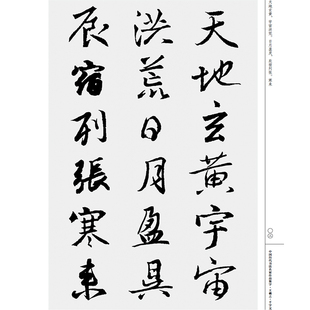 天地玄黄，宇宙洪荒。日月盈昃，辰宿列张。寒来
天地玄黄宇宙
洪荒日月盈昃
辰宿列張寒来